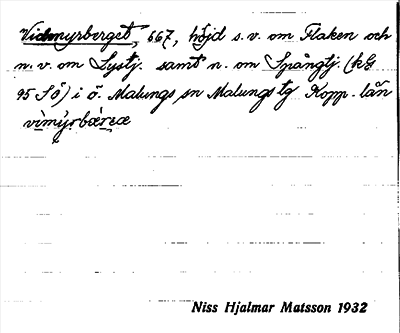 Vidmyrberget, 667, höjd s.v. om Flaken och
n.v. om Lystj. samt n. om Spångtj. (kG
95 SÖ) i ö. Malungs sn Malungs tg Kopp. län
vìmy̆rbæreæ
Niss Hjalmar Matsson 1932